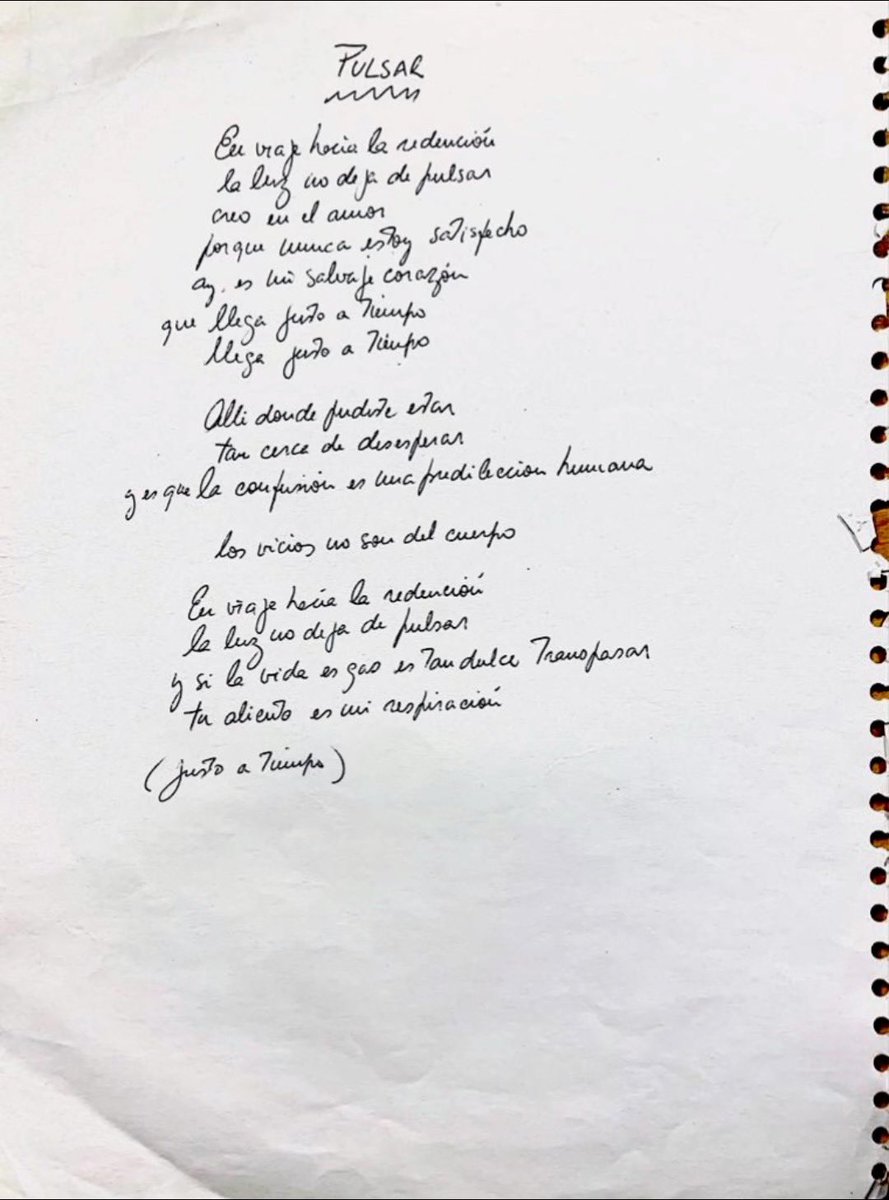 PULSAR
En viaje hacia la redención
la luz no deja de pulsar
creo en el amor
porque nunca estoy satisfecho
ay, es mi salvaje corazón
que llega justo a tiempo
llega justo a tiempo
Alli donde pudiste estar
tan cerca de desesperar
y es que la confusión es una predilección humana
los vicios no son del cuerpo
En viaje hacia la redención
la luz no deja de pulsar
y si la vida es gas es tan dulce transpasar
tu aliento es mi respiración
(justo a tiempo)